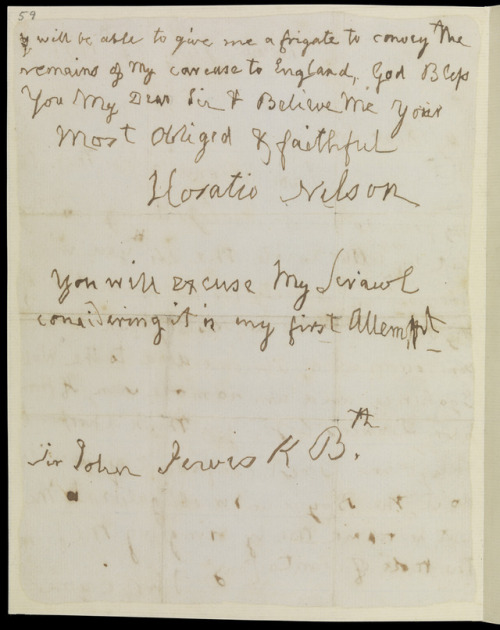 59
y will be able to give me a frigate to convey the
remains of My carcase to England, God Bless
You My Dear Sir & Believe Me Your
Most Obliged & faithful
Horatio Nelson
You will excuse My Scrawl
considering it is my first Attempt
Sir John Jervis K B.th